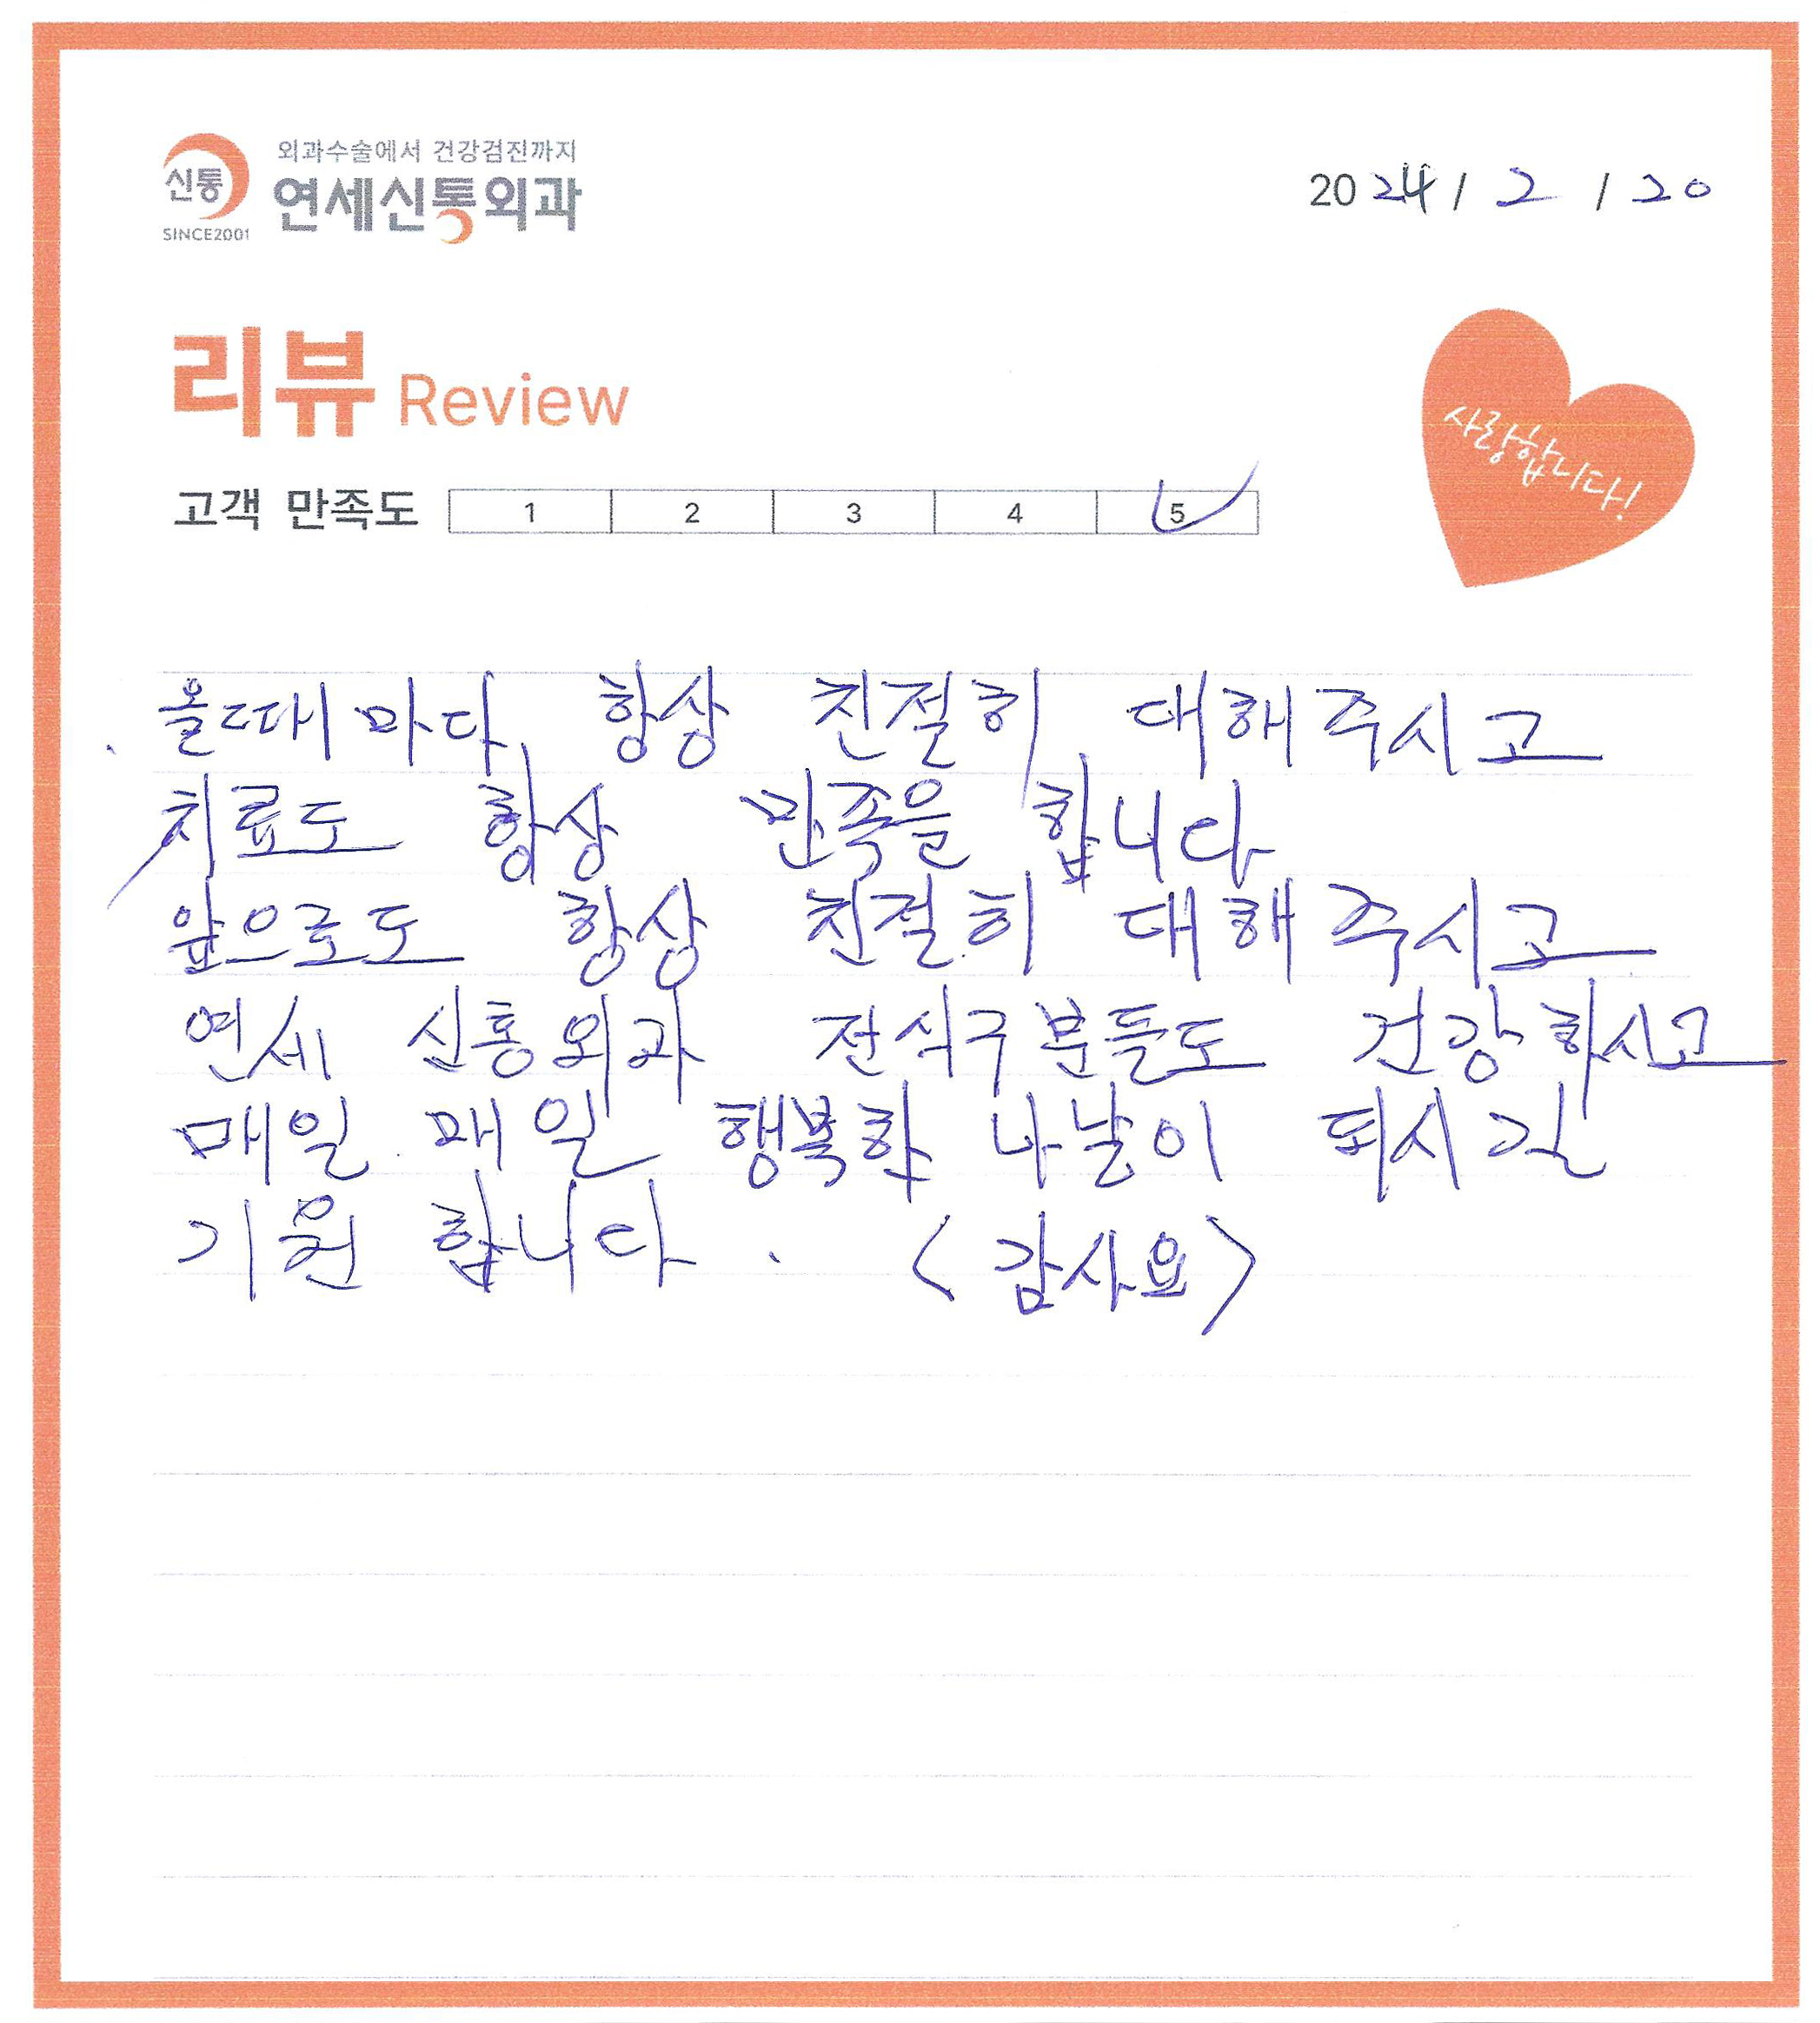 외과수술에서 건강검진까지
신통 연세신통외과
SINCE2001
2024 / 2 / 20
리뷰 Review
사랑합니다!
고객 만족도 1 2 3 4 5
올때마다 항상 친절히 대해주시고
치료도 항상 만족을 합니다
앞으로도 항상 친절히 대해주시고
연세 신통외과 전식구분들도 건강하시고
매일 매일 행복한 나날이 되시길
기원 합니다. <감사요>